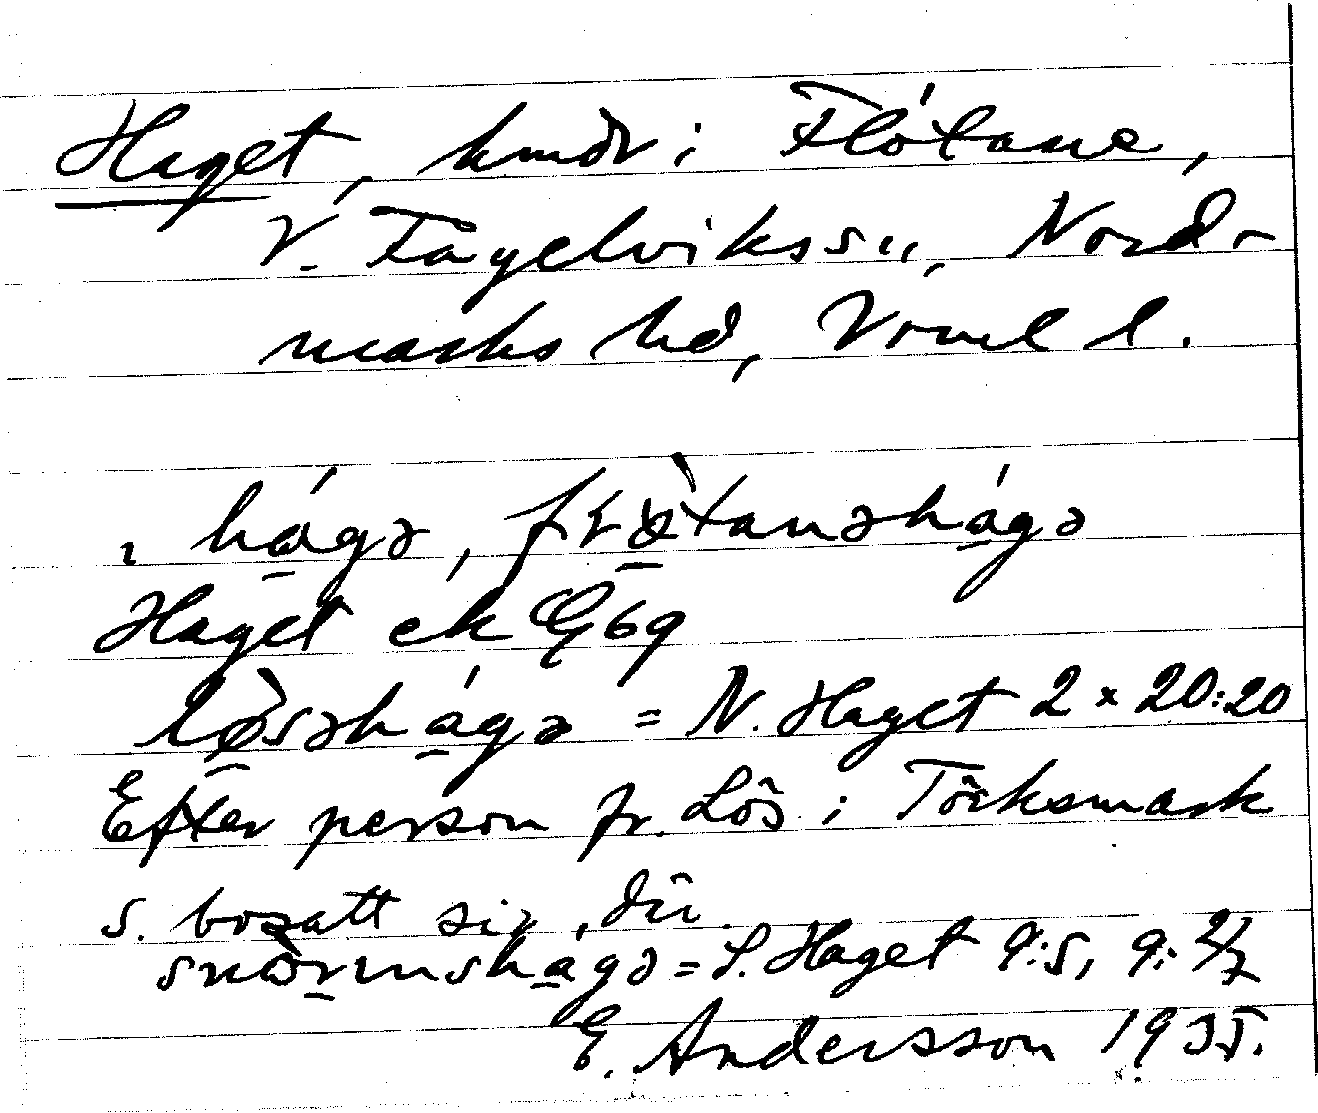 Haget, hmdr i Flötane,
V. Fågelvikss::, Nord-
marks hd, Värml l.
ı hagə, fløtanəhagə
Haget ek G69
løsəhagə = N. Haget 2 x 20:20
Efter person fr. Lös i Törksmark
s. bosatt sig där
= S. Haget 9:5, 9:
E. Andersson 1935.